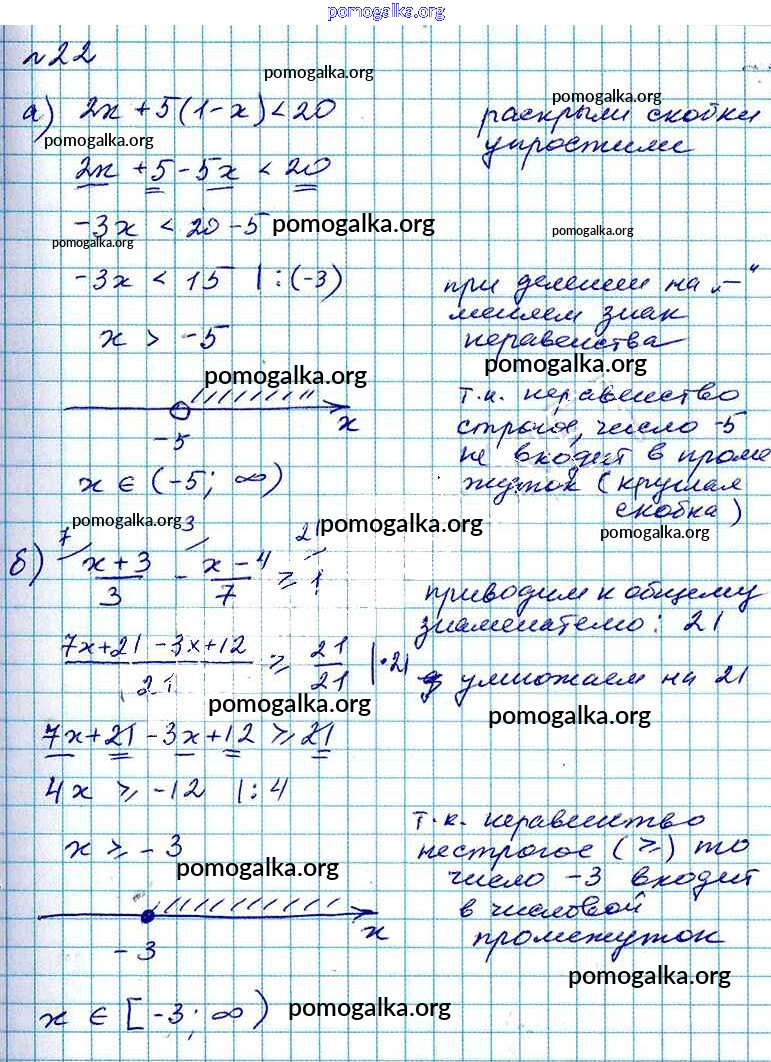 pomogalka.org
№22
pomogalka.org
а) 2x + 5(1-x) < 20
pomogalka.org
раскрыли скобки
pomogalka.org
упростили
2x + 5 - 5x < 20
-3x < 20 - 5
pomogalka.org
pomogalka.org
pomogalka.org
-3x < 15 |:(-3)
при делении на „—"
меняем знак
x > -5
неравенства
pomogalka.org
pomogalka.org
т.к. неравенство
x
-5
строгое, число -5
не входит в проме
x ∈ (-5; ∞)
жуток (круглая
скобка)
pomogalka.org
pomogalka.org
pomogalka.org
б) 7/ (x+3)/3 - 3/ (x-4)/7 ≥ 21/ 1
приводим к общему
знаменателю: 21
(7x+21-3x+12)/21 ≥ 21/21 |·21
умножаем на 21
pomogalka.org
pomogalka.org
7x + 21 - 3x + 12 ≥ 21
4x ≥ -12 |:4
т.к. неравенство
x ≥ -3
нестрогое (≥) то
pomogalka.org
число -3 входит
в числовой
x
-3
промежуток
pomogalka.org
x ∈ [-3; ∞)
pomogalka.org